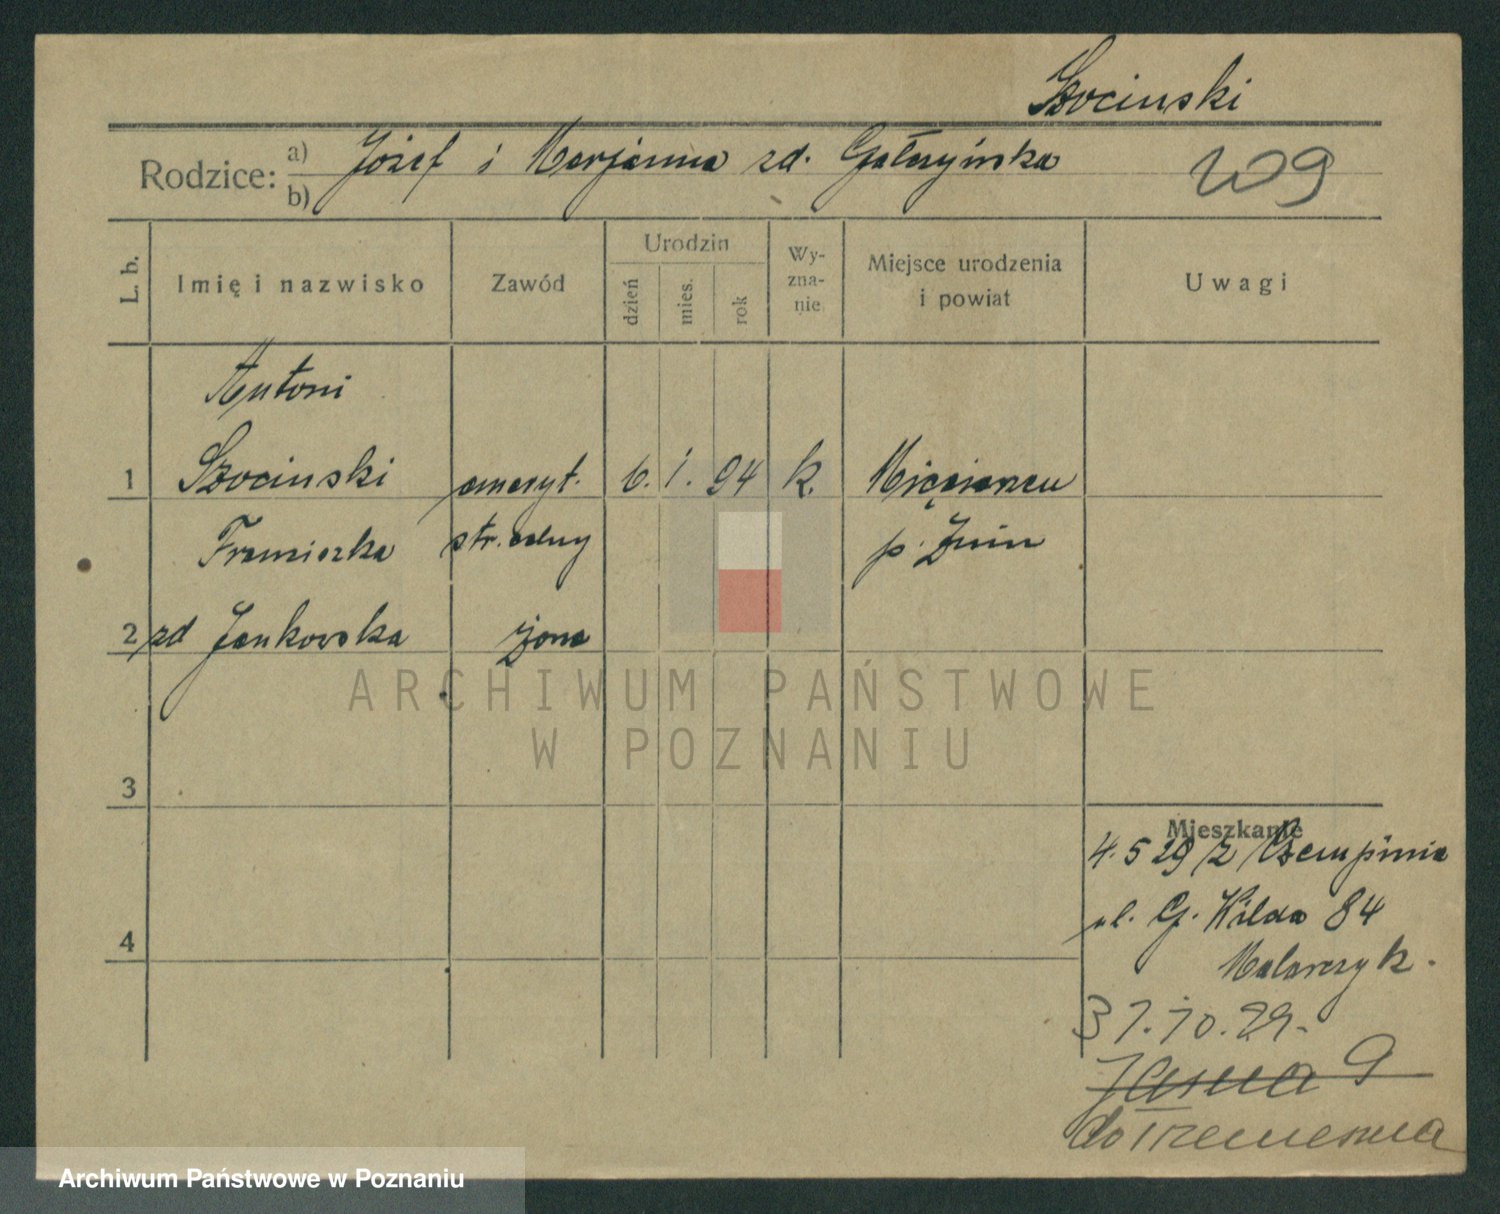 Szociuski
Rodzice: a) Józef i Marjanna zd. Gałczyńska
b)
209
L. b. Imię i nazwisko Zawód Urodzin dzień mies. rok Wyznanie Miejsce urodzenia i powiat Uwagi
Antoni
1 Szociuski emeryt. 6. 1. 94 k.
Franciszka str. celny p. Żnin
2 zd Jankowska żona
ARCHIWUM PAŃSTWOWE
W POZNANIU
3
Mieszkanie
4. 5 29 z Czempinia
ul. G. Wilda 84
4
Malarczyk.
31. 10. 29.
Jasna 9
do Trzemeszna
Archiwum Państwowe w Poznaniu